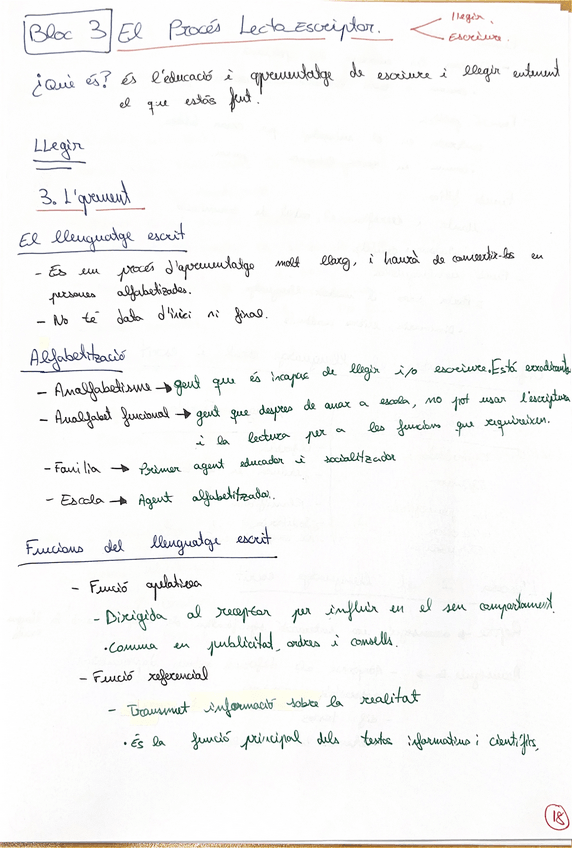 Bloc 3 El Procés LectoEscriptor. Llegir.
Escriure.
¿Què és? és l'educació i aprenentatge de escriure i llegir entenent
el que estàs fent.
LLegir
3. L'aprenent
El llenguatge escrit
- És un procés d'aprenentatge molt llarg, i haurà de convertir-los en
persones alfabetizades.
- No té data d'inici ni final.
Alfabetització
- Analfabetisme → gent que és incapaç de llegir i/o escriure. Està
- Analfabet funcional → gent que despres de anar a escola, no pot usar l'escriptura
i la lectura per a les funcions que requireixen.
- Familia → Primer agent educador i socialitzador
- Escola → Agent alfabetitzador.
Funcions del llenguatge escrit
- Funció apelativa
- Dirigida al receptor per influir en el seu comportament.
· Comuna en publicitat, ordres i consells.
- Funció referencial
- Transmet informació sobre la realitat
· És la funció principal dels textos informatius i científics.
18